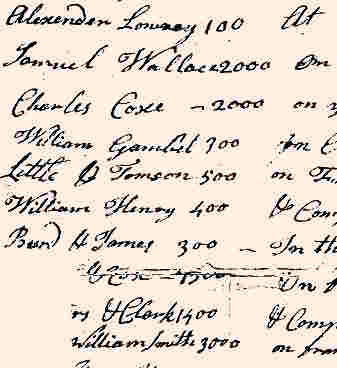 Alexender Lowrey 100 At
Samuel Wallace 2000 On
Charles Coxe – 2000 on
William Gambiel 300 on
Little & Tomson 500 on
William Henry 400 & Comp
Burd & James 300 – In th
& Cox – 1500 On
rs & Clark 1400 & Comp
William Smith 3000 on